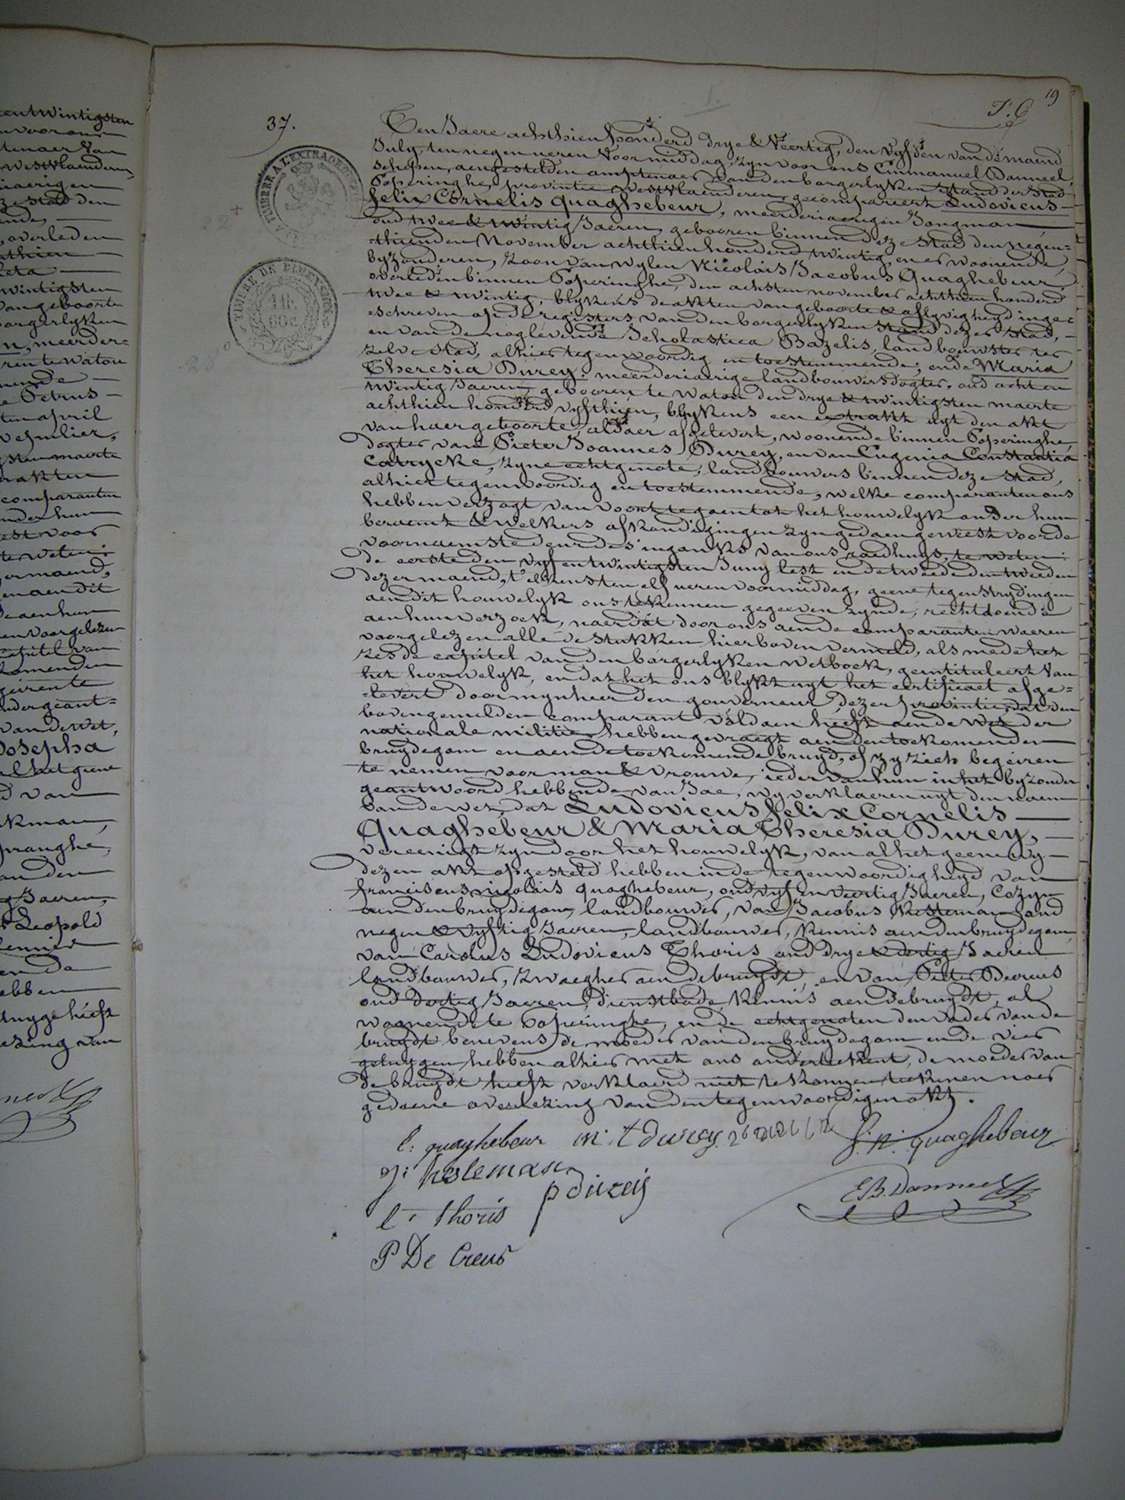 19
T. C
37.
Ten Jaere achthien honderd drye & Veertig, den vyfden van de maend
July, ten negen ueren Voormiddag, zyn voor ons Emmanuel Danneel
Schepen, aengestelden amptenaer van den borgerlyken stand der Stad
Poperinghe, provintie Westvlaenderen, gecompareert Ludovicus
felix Cornelis Quaghebeur, meerderjaerigen Jongman
oud twee & twintig Jaeren, gebooren binnen deze Stad den negen-
thienden November achthien honderd twintig, en er woonende,
byzonderen, zoon van wylen Nicolais Jacobus Quaghebeur,
overleden binnen Poperinghe, den achsten november achthien honderd
twee & twintig, blykens de akten van geboorte & aflyvigheid inge-
eschreven op de registers van den borgerlyken stand dezer Stad,
en van de noglevende Scholastica Bazelis, landbouwster ter
zelve Stad, alhier tegenwoordig en toestemmende, ende Maria
Theresia Durey, meerderjaerige landbouwersdogter, oud acht en
twintig Jaeren, gebooren te Watou den drye & twintigsten maerte
achthien honderd vyfthien, blykens een extrakt uyt den akt
van haer geboorte, aldaer afgelevert, woonende binnen Poperinghe,
dogter van Pieter Joannes Durey, en van Eugenia Constantia
Catrycke, zyne echtgenote, landbouwers binnen deze Stad,
alhier tegenwoordig en toestemmende, welke comparanten ons
hebben verzogt van voort te gaen tot het houwelyk onder hun
beraemt & welkers afkondigingen zyn gedaen geweest voor de
voornaemste deure des ingangs van ons raedhuys, te weten:
de eerste den vyf en twintigsten Juny lest en de tweede den tweeden
dezer maend, t'elkens ten elf ueren voormiddag, geene tegenstrydingen
aen dit houwelyk ons te kennen gegeeven zynde, rechtdoende
aen hun verzoek, naer dat door ons aen de comparanten waeren
voorgelezen alle de stukken hierboven vermeld, als mede het
zesde capittel van den borgerlyken wetboek, geintituleert van
het houwelyk, en dat het ons blykt uyt het certificaet afge-
elevert door mynheer den gouverneur dezer provintie, dat den
bovengemelden comparant voldaen heeft aen de wet der
nationale militie, hebben gevraegt aen den toekomenden
bruydegom en aen de toekomende bruyd, of zy zich begeiren
te nemen voor man & vrouwe, ieder van hun in het byzonder
geantwoord hebbende van Jae, wy verklaeren uyt den naem
van de wet, dat Ludovicus felix Cornelis
Quaghebeur & Maria Theresia Durey,
vereenigt zyn door het houwelyk, van al het geene wy
dezen akt opgesteld hebben in de tegenwoordigheyd van
franciscus nigolais Quaghebeur, oud vyf en veertig Jaeren, Cozyn
aen den bruydegom, landbouwer, van Jacobus Kesteman, oud
negen & vyftig Jaeren, landbouwer, kennis aen den bruydegom,
van Carolus Ludovicus Thoris oud drye & dertig Jaeren
landbouwer, zwaegher aen de bruydt, en van Pieter Decreus
oud dertig Jaeren, dienstbode kennis aen de bruydt, al
woonende te Poperinghe, en de echtgenoten den vader van de
bruydt benevens de moeder van den bruydegom en de vier
getuygen hebben alhier met ons onderteekent, de moeder van
de bruydt heeft verklaerd niet te konnen teekenen naer
gedaene overlezing van den tegenwoordigen akt.
l: quaghebeur m: t durey f: n: quaghebeur
J: kesteman p durey
E B Danneel
l: thoris
P De Creus